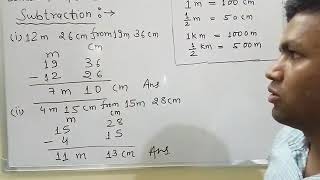 Subtraction:→
(i) 12m 26cm from 19m 36cm
m cm
19 36
- 12 26
7 m 10 cm Ans
(ii) 4m 15cm from 15m 28cm
m cm
15 28
- 4 15
11 m 13 cm Ans
1m = 100 cm
1/2 m = 50cm
1km = 1000m
1/2 km = 500m